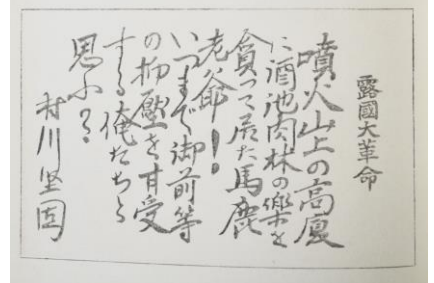 露國大革命
噴火山上の高廈
に酒池肉林の樂を
貪って居た馬鹿
老爺！
いつまで御前等
の抑壓を甘受
する俺たちと
思ふ？
村川堅固